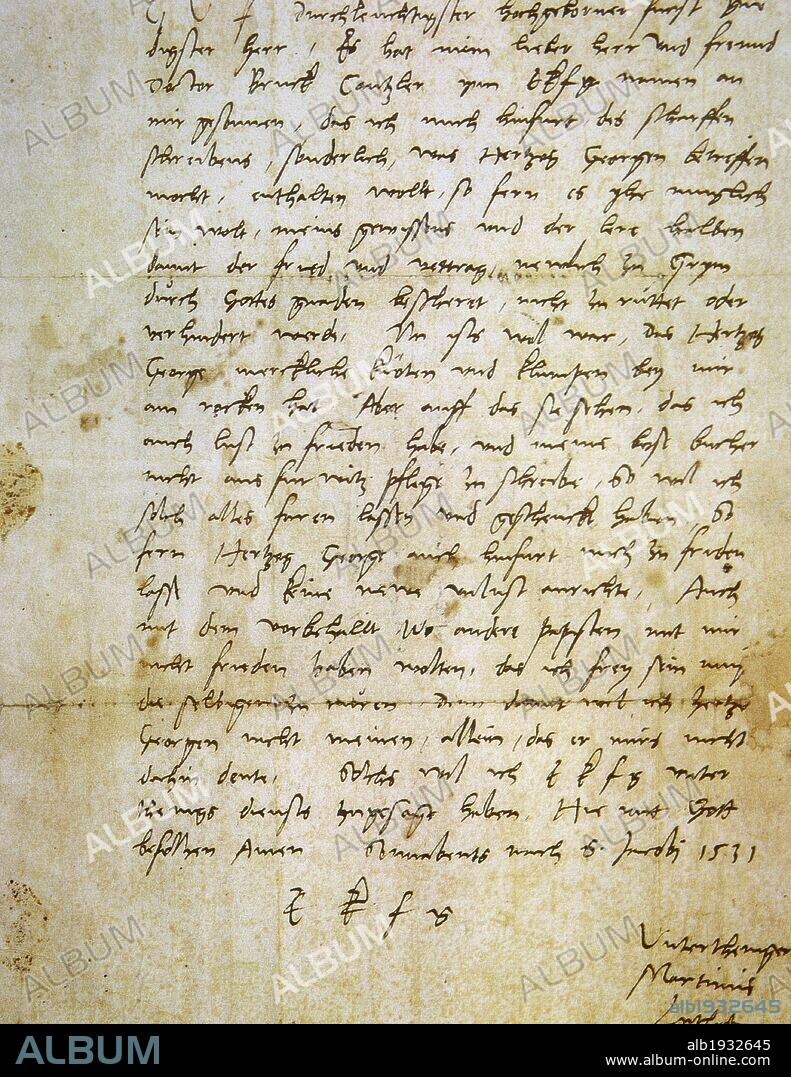 G U F Durchleuchtigster hochgeborner furst
digster herr, Es hat mein lieber herr und freund
Doctor Bruck Cantzler ynn EKfg namen an
mir gesonnen, das ich mich hinfurt des scharffen
schreibens, sonderlich, was Hertzog Georgen betreffen
mocht, enthalten wolt, so fern es yhe muglich
sein wolt, meins gewissens und der lere halben
damit der fried und vertrag, newlich zu Grym
durch Gottes gnaden bescheret, nicht zu rüttet oder
verhindert werde. Nu ists wol war, das Hertzog
George merckliche Kröten und klumpen bey mir
am rocken hat Aber auff das sie sehen, das ich
auch lust zu frieden habe, und meine bose bucher
nicht aus furwitz pflege zu schreibe, So wil ich
solch alles faren lassen und geschenckt haben, So
fern Hertzog George auch hinfurt mich zu friden
lasse und keine newe unlust anrichte, Auch
mit dem vorbehallt Wo andere Papisten mit mir
nicht frieden haben wolten, das ich frey sein mug
die selbigen zu rüren denn damit wil ich Hertzog
Georgen nicht meinen, allein, das er mirs nicht
dahin deute, Solchs wil ich EKfg unter
theniges diensts zugesagt haben, Hie mit Gott
befolhen Amen Sonnabents nach S. Jacobi 1531
E K f g
Untertheniger
Martinus
Luther
ALBUM
alb1932645
ALBUM
alb1932645
www.album-online.com